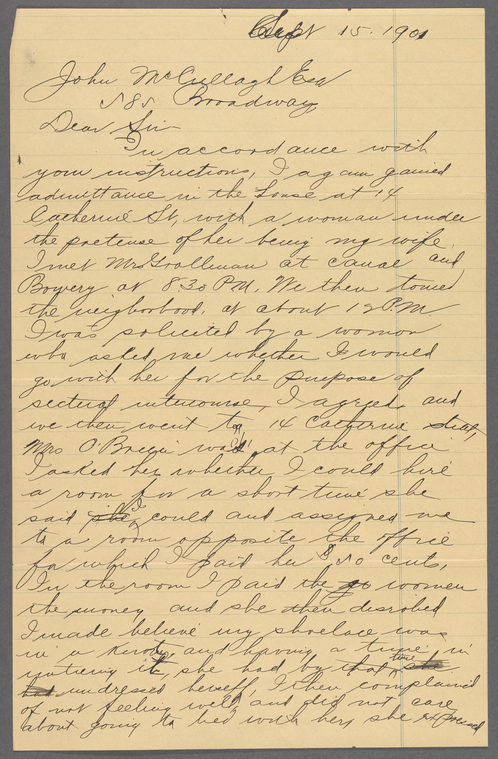 Sept 15. 1901
John McCullagh Esq
585 Broadway
Dear Sir
In accordance with
your instructions, I again gained
admittance in the house at 14
Catherine St, with a woman under
the pretense of her being my wife.
I met Mrs at Canal and
Bowery at 8:30 P.M. We then toured
the neighborhood, at about 12 P.M
I was solicited by a woman
who asked me whether I would
go with her for the purpose of
sectual intercourse, I agreed, and
we then went to 14 Catherine street,
Mrs was at the office
I asked her whether I could hire
a room for a short time she
said she I could and assigned me
to a room opposite the office
for which I paid her $ 50 cents,
In the room I paid the women
the money and she then disrobed
I made believe my shoelace was
in a and having a time in
untieing it, she had by that time she
had undressed herself, I then complained
of not feeling well, and did not care
about going to bed with her, she